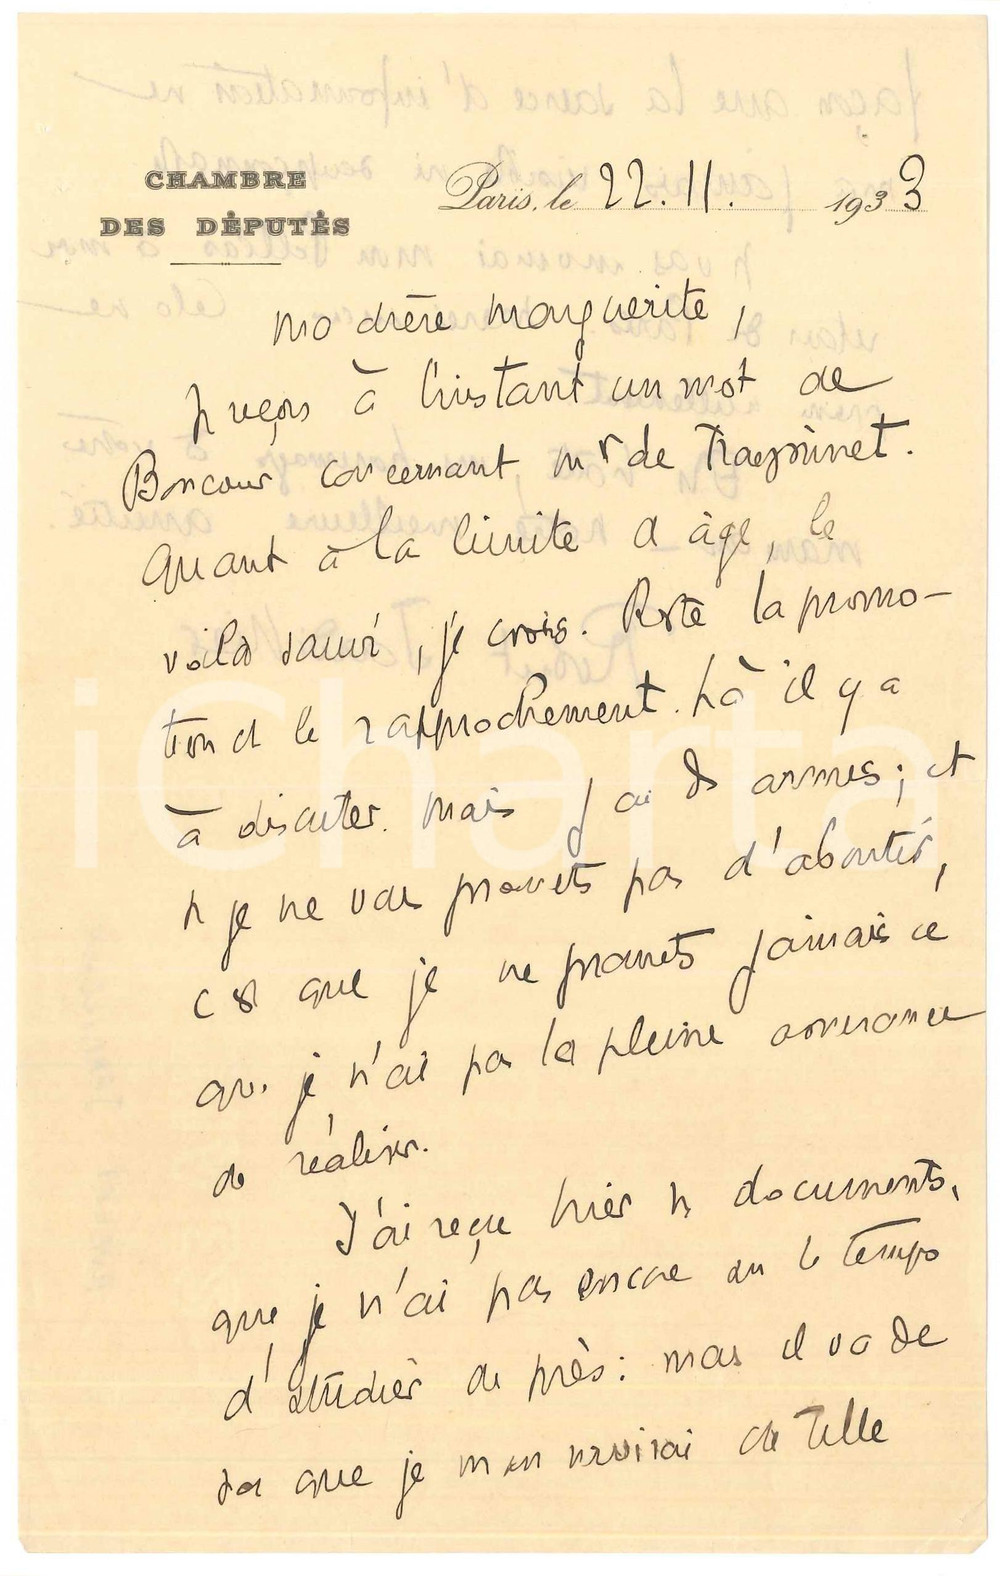 CHAMBRE
DES DÉPUTÉS
Paris, le 22.11. 1933
Ma chère Marguerite,
Je reçois à l'instant un mot de
Boncour concernant Mr de
Quant à la limite d'âge, le
voilà sauvé, je crois. Reste la promo-
tion et le rapprochement. Là il y a
à discuter. Mais j'ai des armes ; et
si je ne vous promets pas d'aboutir,
c'est que je ne promets jamais ce
que je n'ai pas la pleine assurance
de réaliser.
J'ai reçu hier les documents,
que je n'ai pas encore eu le temps
d'étudier de près : mais il va de
soi que je m'en servirai de telle
iCharta